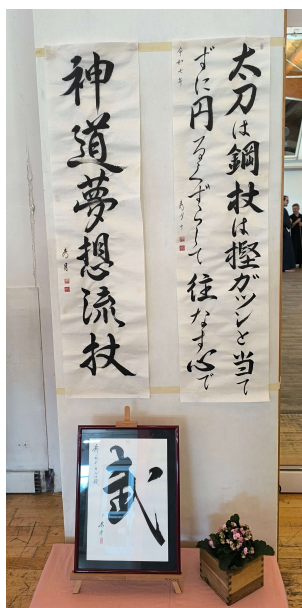 太刀は鋼杖は樫ガツンと当て
ずに円るくずらして往なす心で
令和七年
神道夢想流杖
武